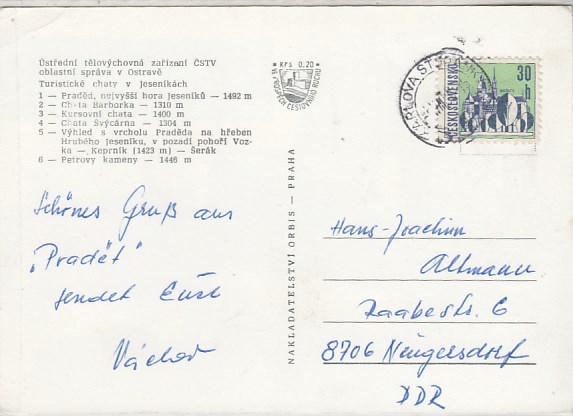 Ústřední tělovýchovná zařízení ČSTV
oblastní správa v Ostravě
Turistické chaty v Jeseníkách
1 — Praděd, nejvyšší hora Jeseníků — 1492 m
2 — Chata Barborka — 1310 m
3 — Kursovní chata — 1400 m
4 — Chata Švýcárna — 1304 m
5 — Výhled s vrcholu Pradědа na hřeben
Hrubého Jeseníku, v pozadí pohoří Voz-
ka — Keprník (1423 m) — Šerák
6 — Petrovy kameny — 1446 m
Kčs 0.20
VE PROSPĚCH CESTOVNÍHO RUCHU
KARLOVA
ČESKOSLOVENSKO
30
h
NAKLADATELSTVÍ ORBIS — PRAHA
Schönes Gruß aus
„Pradět"
sendet Euch
Hans-Joachim
Altmann
Raabestr. 6
8706 Neugersdorf
DDR